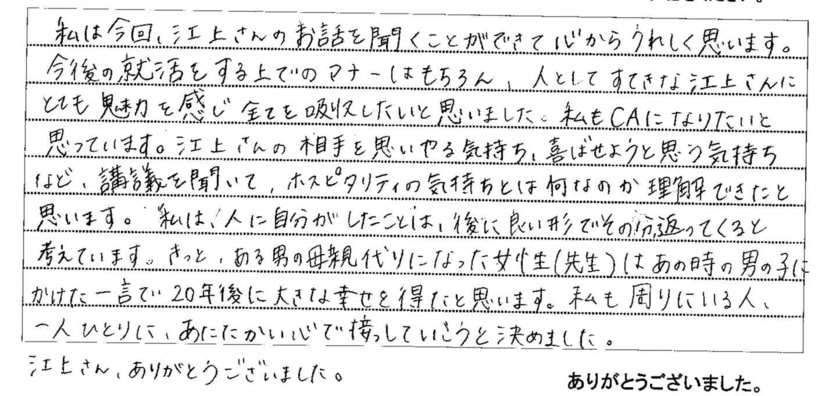 私は今回、江上さんのお話を聞くことができて心からうれしく思います。
今後の就活をする上でのマナーはもちろん、人としてすてきな江上さんに
とても魅力を感じ全てを吸収したいと思いました。私もCAになりたいと
思っています。江上さんの相手を思いやる気持ち、喜ばせようと思う気持ち
など、講議を聞いて、ホスピタリティの気持ちとは何なのか理解できたと
思います。私は、人に自分がしたことは、後に良い形でその分返ってくると
考えています。きっと、ある男の母親代りになった女性(先生)はあの時の男の子に
かけた一言で20年後に大きな幸せを得たと思います。私も周りにいる人、
一人ひとりに、あたたかい心で接っしていこうと決めました。
江上さん、ありがとうございました。
ありがとうございました。